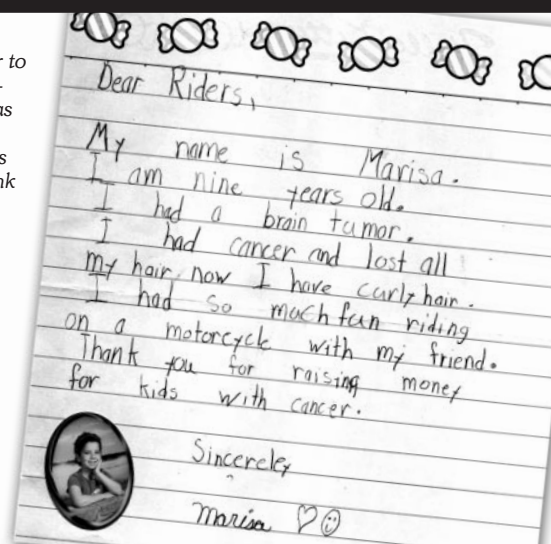 r to
-
as
s
nk
Dear Riders,
My name is Marisa.
I am nine years old.
I had a brain tumor.
I had cancer and lost all
my hair, now I have curly hair.
I had so much fun riding
on a motorcycle with my friend.
Thank you for raising money
for kids with cancer.
Sincereley
Marisa